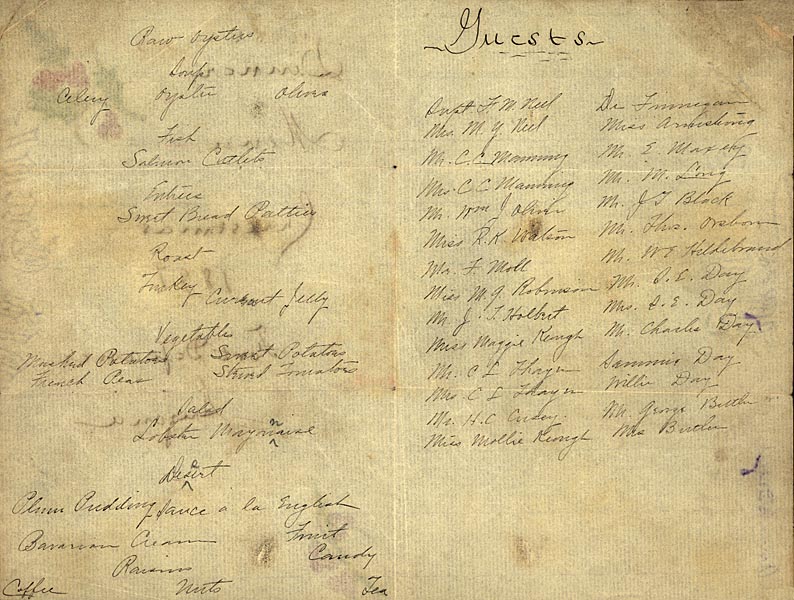 Raw Oysters
Soup
Celery Oyster Olives
Fish
Salmon Cutlets
Entrees
Sweet Bread Patties
Roast
Turkey Currant Jelly
Vegetable
Mashed Potatoes Sweet Potatoes
French Peas Stewed Tomatoes
Salad
Lobster Mayonnaise
Desert
Plum Pudding Sauce a la English
Bavarian Cream Fruit
Candy
Raisins
Coffee Nuts Tea
Guests
Supt F. M. Neel
Mrs. M. Y. Neel
Mr. C C Manning
Mrs. C C Manning
Mr. Wm J. Oliver
Miss R. K. Watson
Mr. F. Moll
Miss M. G. Robinson
Mr. J. T. Holbert
Miss Maggie Keough
Mr. C L Thayer
Mrs. C L Thayer
Mr. H. C.
Miss Mollie Keough
Dr Finnegan
Miss Armstrong
Mr. E. Maxey
Mr. M. Long
Mr. J T Black
Mr. Thos. Osborn
Mr. W E Hildebrand
Mr. S. E. Day
Mrs. S. E. Day
Mr. Charles Day
Sammie Day
Willie Day
Mr. George Butler
Mrs Butler